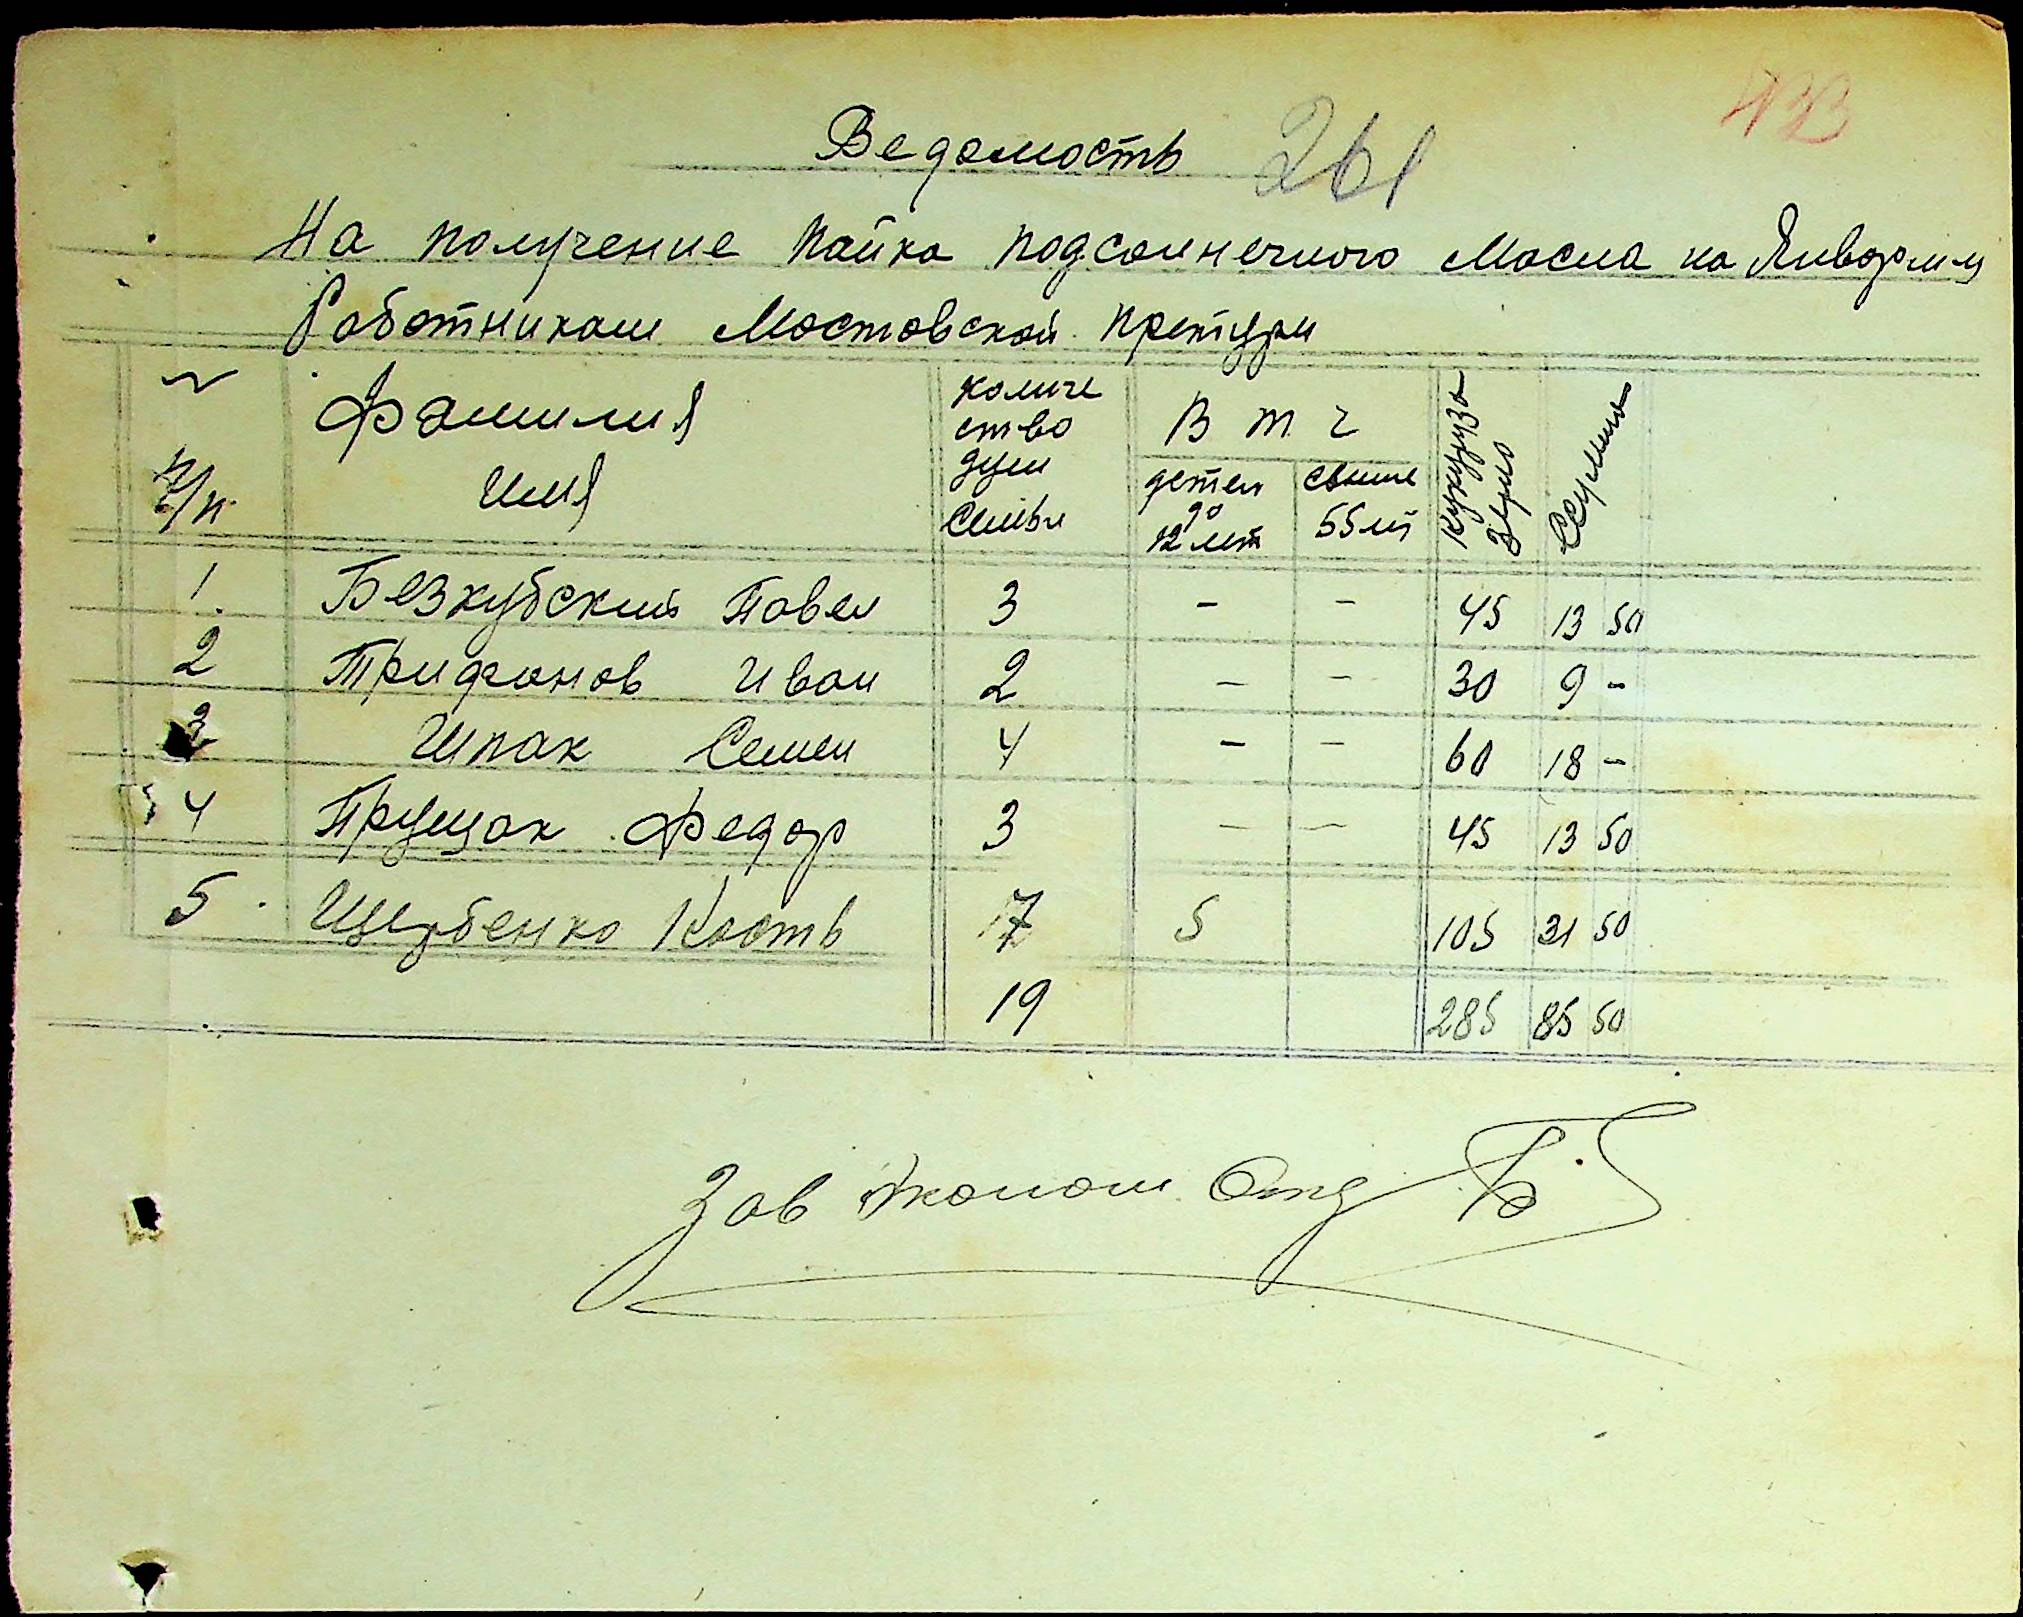 433
Ведомость 261
На получение пайка подсолнечного масла на Январь м-ц
Работникам Мостовской претуры
№ п/п Фамилия Имя количество душ семьи В т ч кукуруза зерно
детей до 12 лет свыше 55 лет
1 Безкубский Павел 3 - - 45 13 50
2 Трифонов Иван 2 - - 30 9 -
3 Шпак Семен 4 - - 60 18 -
4 Прущак Федор 3 - - 45 13 50
5 Щербенко Кость 7 5 105 31 50
19 285 85 50
Зав Эконом Отд